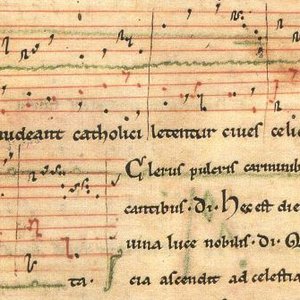 udeant catholici letentur ciues celi
Clerus pulcris carminib
cantibus · Di · Hec est die
uina luce nobilis · Di · Q
ta. cia ascendit ad celestia